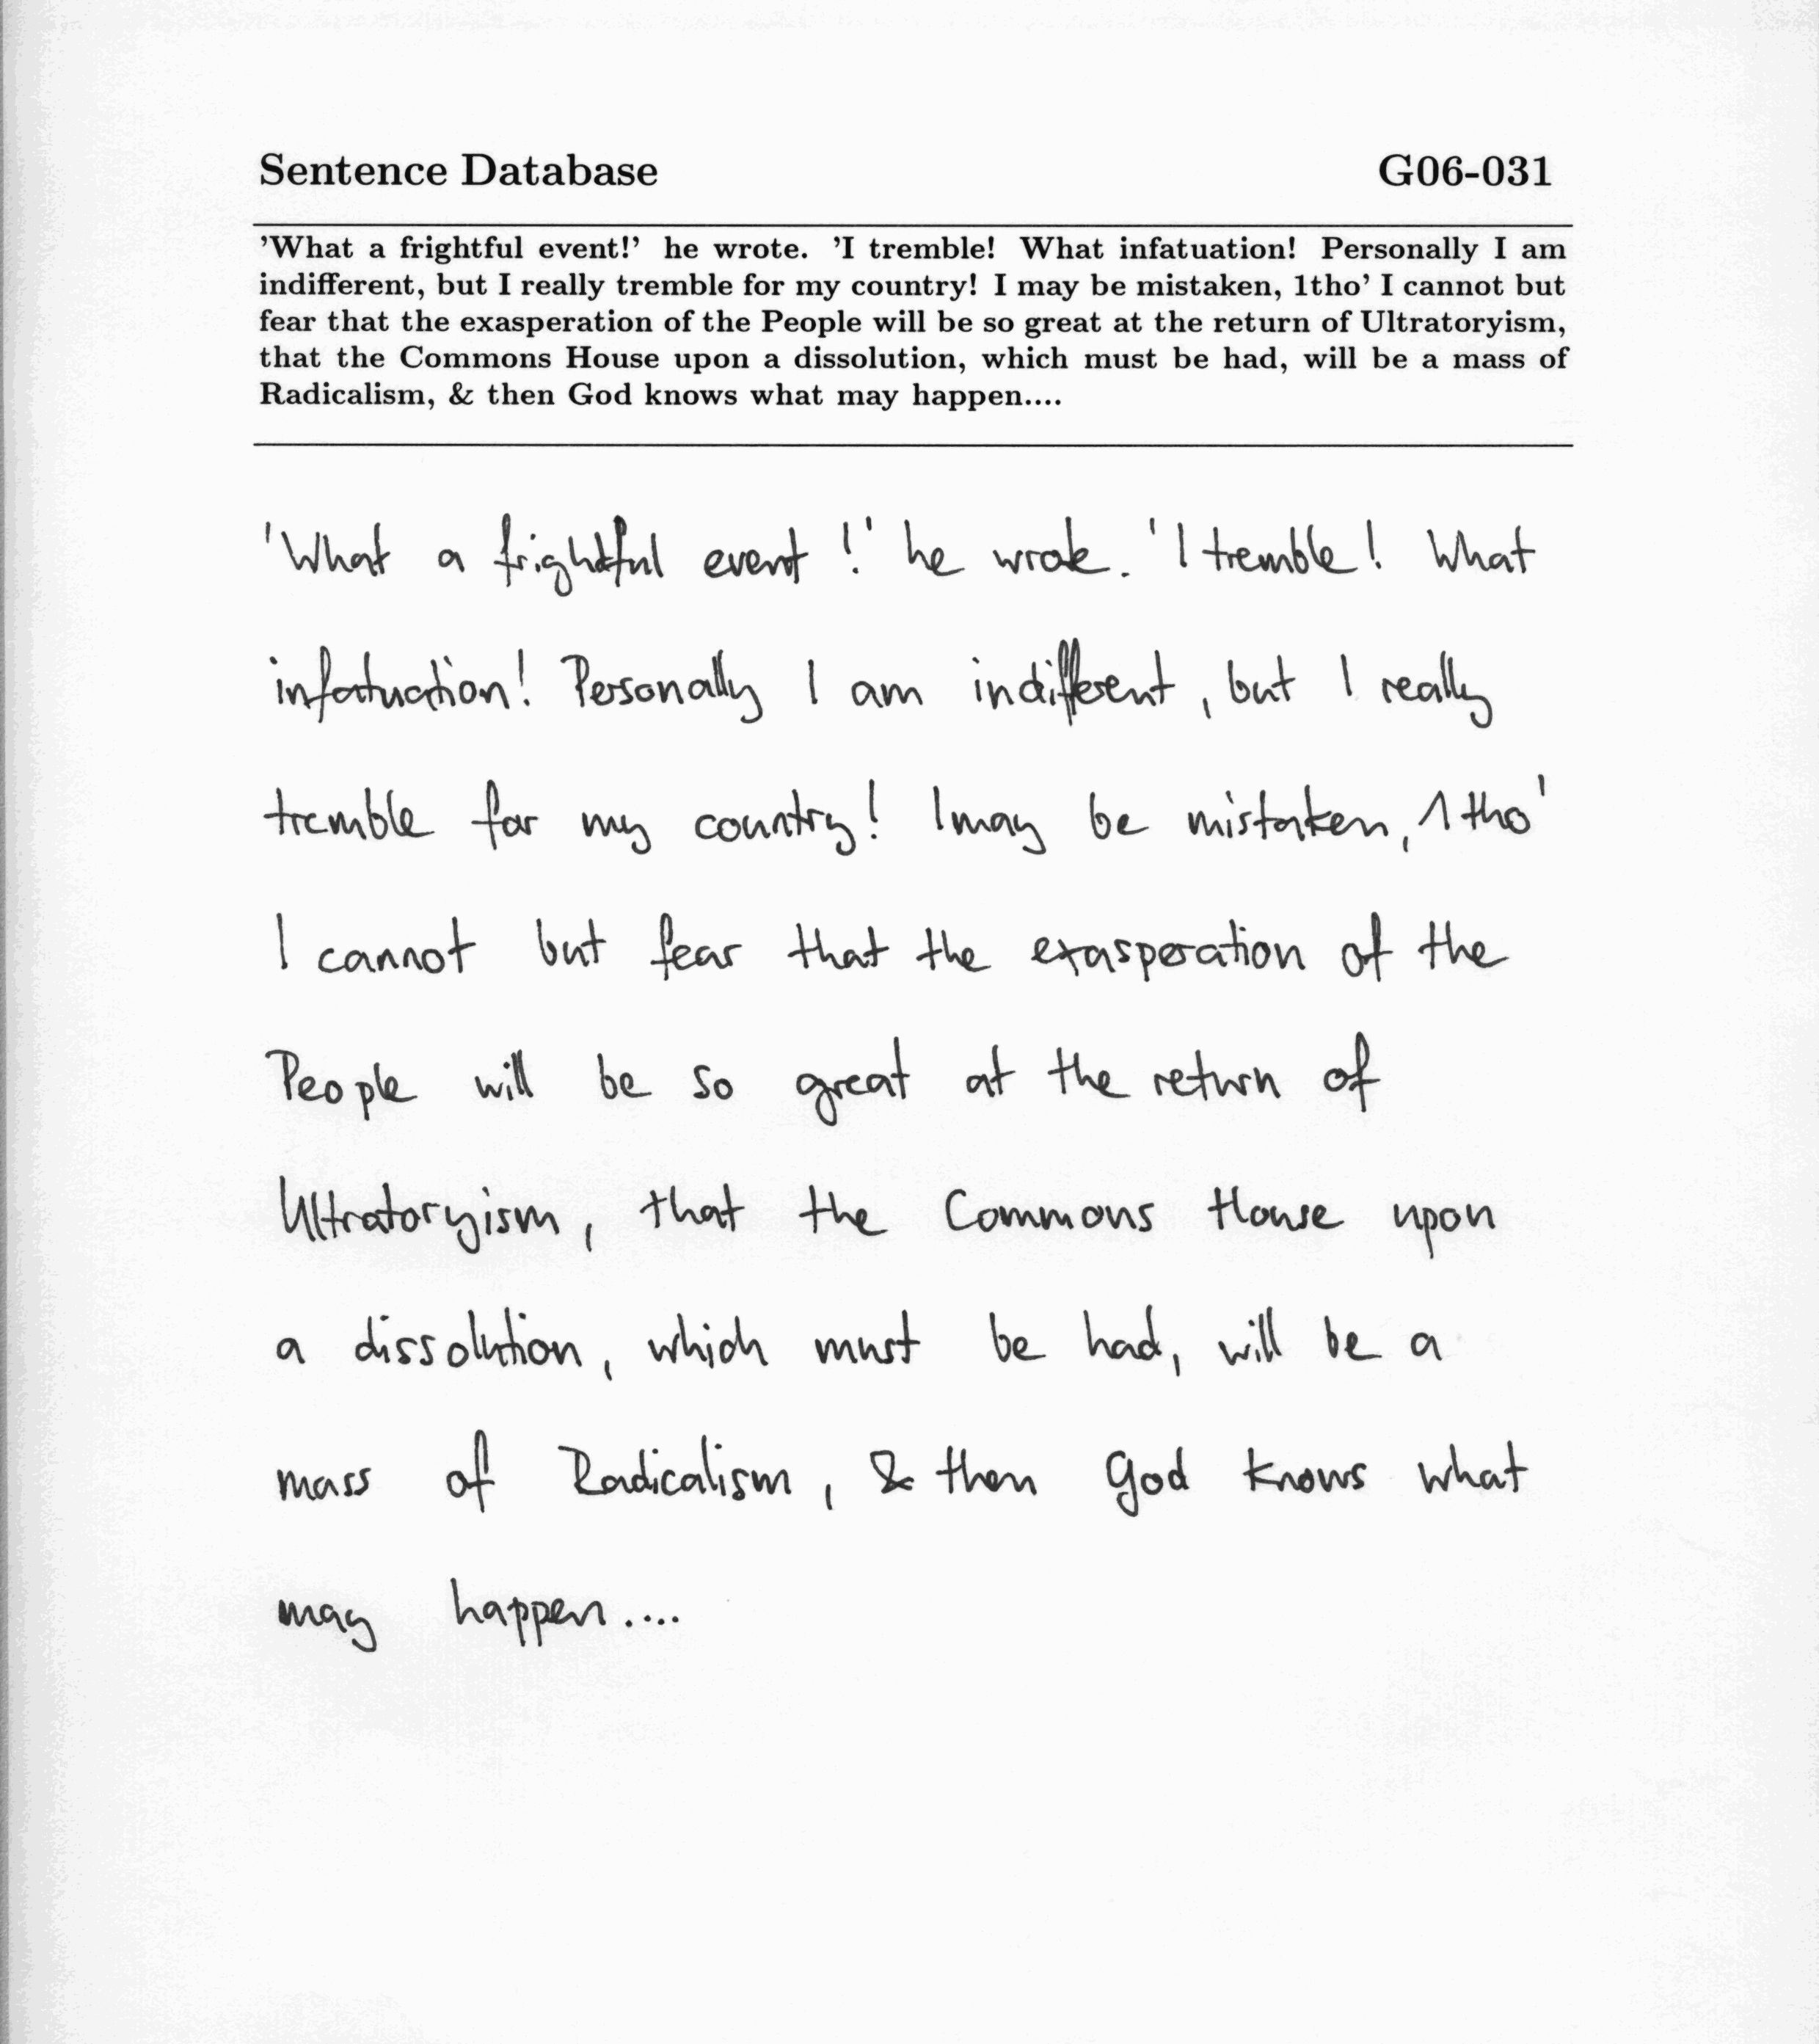 Sentence Database G06-031
’What a frightful event!’ he wrote. ’I tremble! What infatuation! Personally I am
indifferent, but I really tremble for my country! I may be mistaken, 1tho’ I cannot but
fear that the exasperation of the People will be so great at the return of Ultratoryism,
that the Commons House upon a dissolution, which must be had, will be a mass of
Radicalism, & then God knows what may happen....
'What a frightful event!' he wrote. 'I tremble! What
infatuation! Personally I am indifferent, but I really
tremble for my country! I may be mistaken, 1tho'
I cannot but fear that the exasperation of the
People will be so great at the return of
Ultratoryism, that the Commons House upon
a dissolution, which must be had, will be a
mass of Radicalism, & then God knows what
may happen....